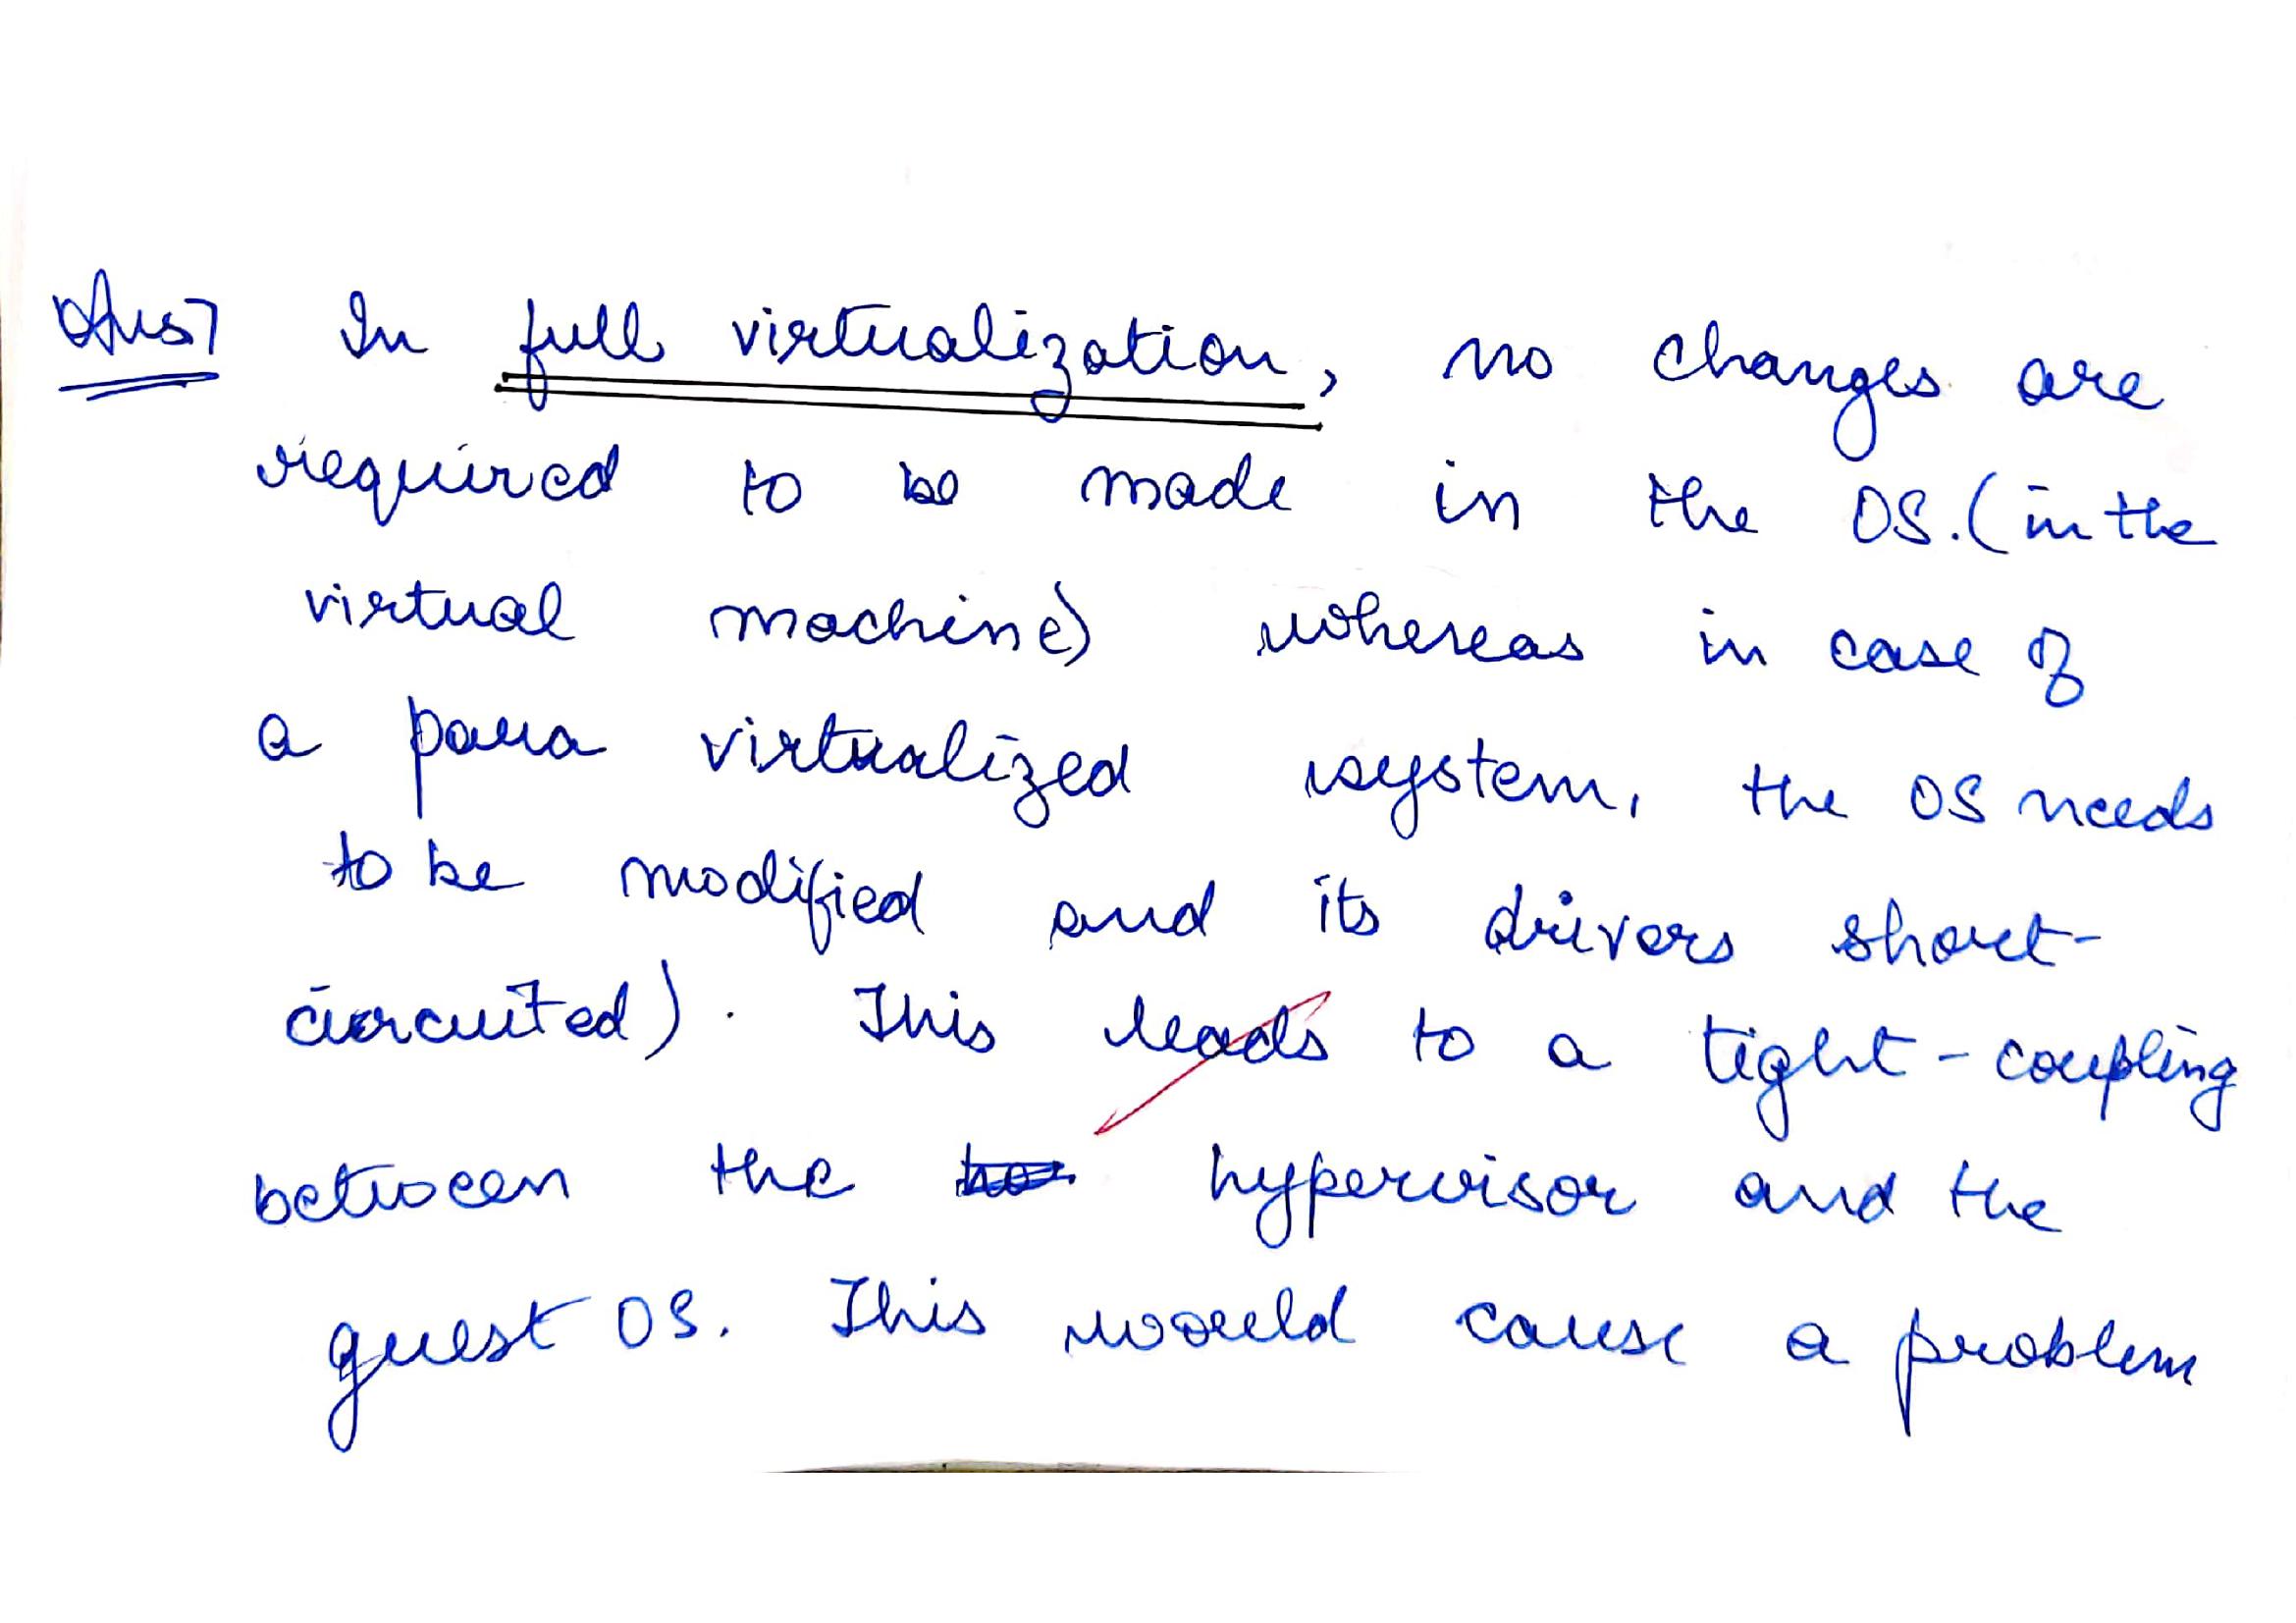 Ans] In full virtualization, no changes are
required to be made in the OS. (in the
virtual machine) whereas in case of
a para virtualized system, the OS needs
to be modified and its drivers short-
circuited). This leads to a tight-coupling
between the hypervisor and the
guest OS. This would cause a problem